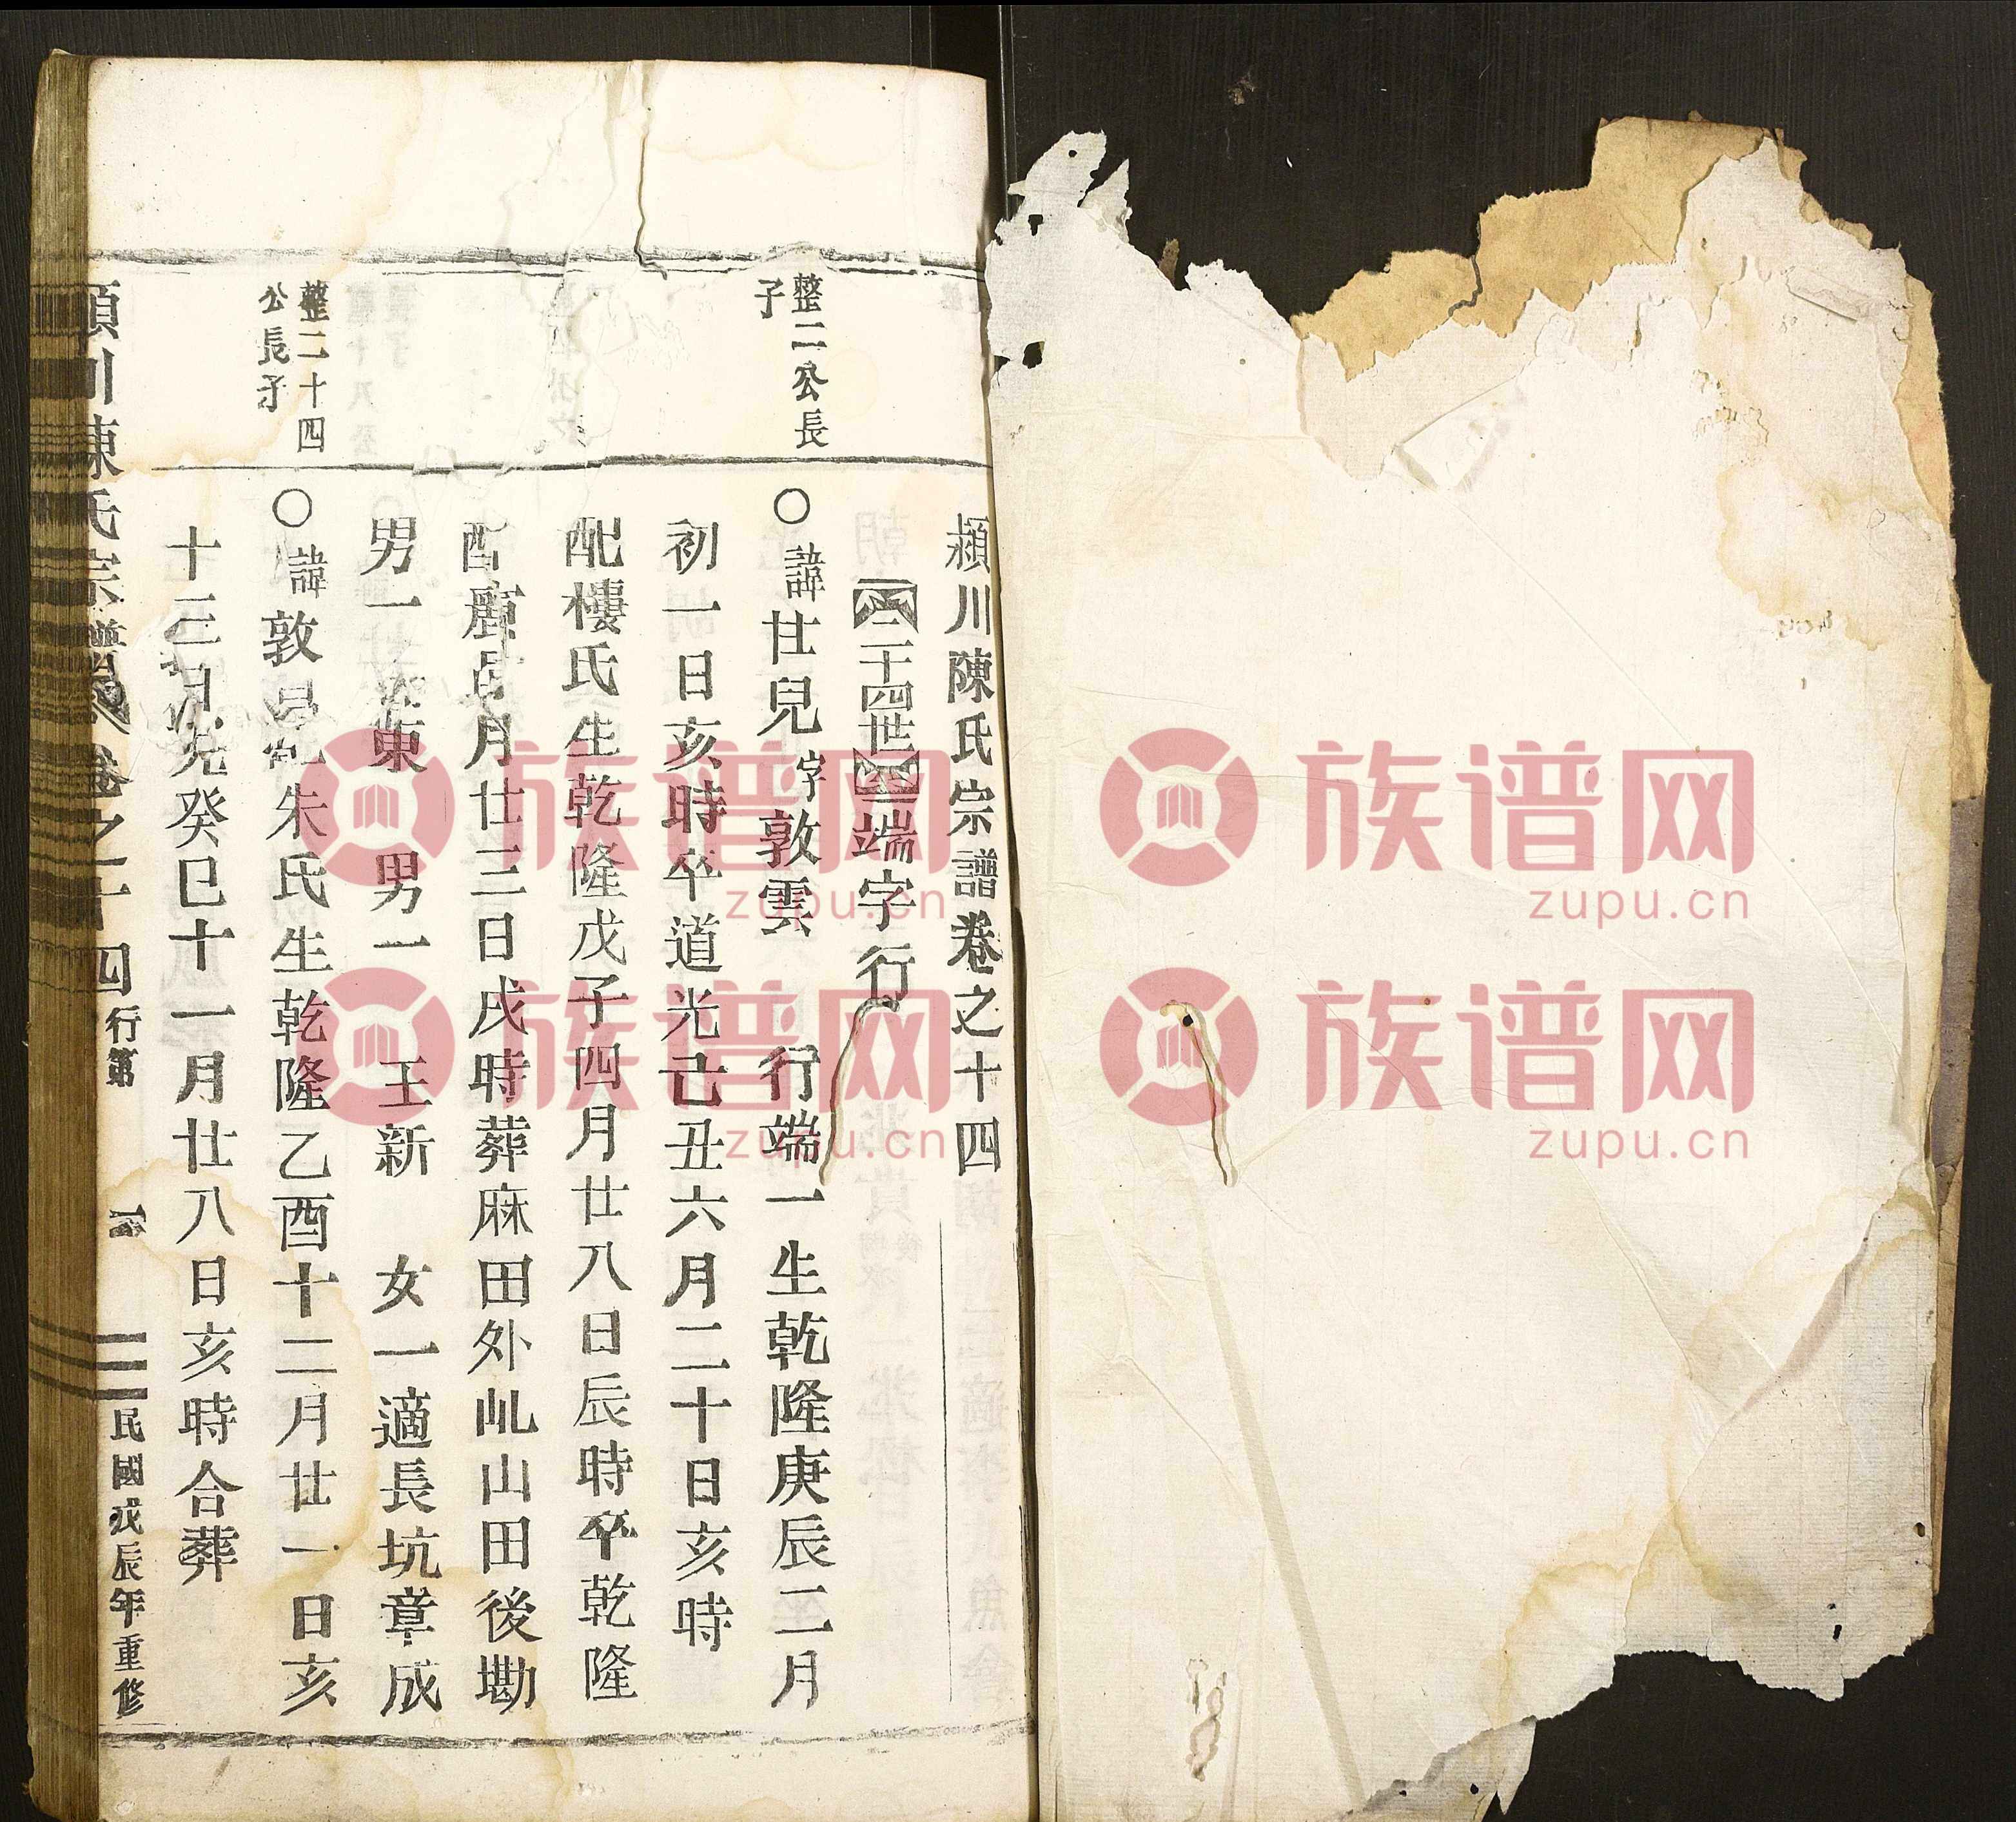 潁川陳氏宗譜卷之十四
二十四世 端字行
整二公長
子
○諱世兒字敦雲 行端一生乾隆庚辰二月
初一日亥時卒道光己丑六月二十日亥時
配樓氏生乾隆戊子四月廿八日辰時卒乾隆
月廿三日戌時葬麻田外山田後墈
男一東 男一 王新 女一適長坑章成
整二十四
公長子
○諱敦昌配朱氏生乾隆乙酉十二月廿一日亥
十三日 癸巳十一月廿八日亥時合葬
潁川陳氏宗譜 卷之十四 行第 一 民國戊辰年重修
族谱网
zupu.cn
族谱网
zupu.cn
族谱网
zupu.cn
族谱网
zupu.cn